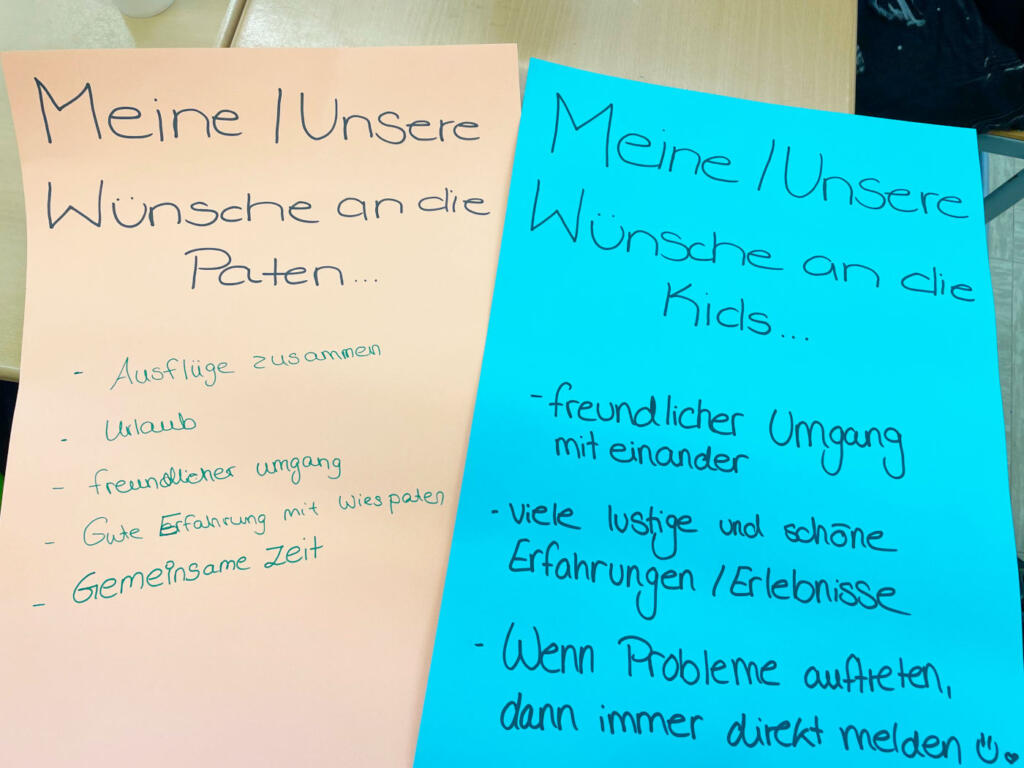 Meine / Unsere
Wünsche an die
Paten...
- Ausflüge zusammen
- Urlaub
- freundlicher umgang
- Gute Erfahrung mit Wiespaten
- Gemeinsame Zeit
Meine / Unsere
Wünsche an die
Kids...
- freundlicher Umgang
mit einander
- viele lustige und schöne
Erfahrungen / Erlebnisse
- Wenn Probleme auftreten,
dann immer direkt melden